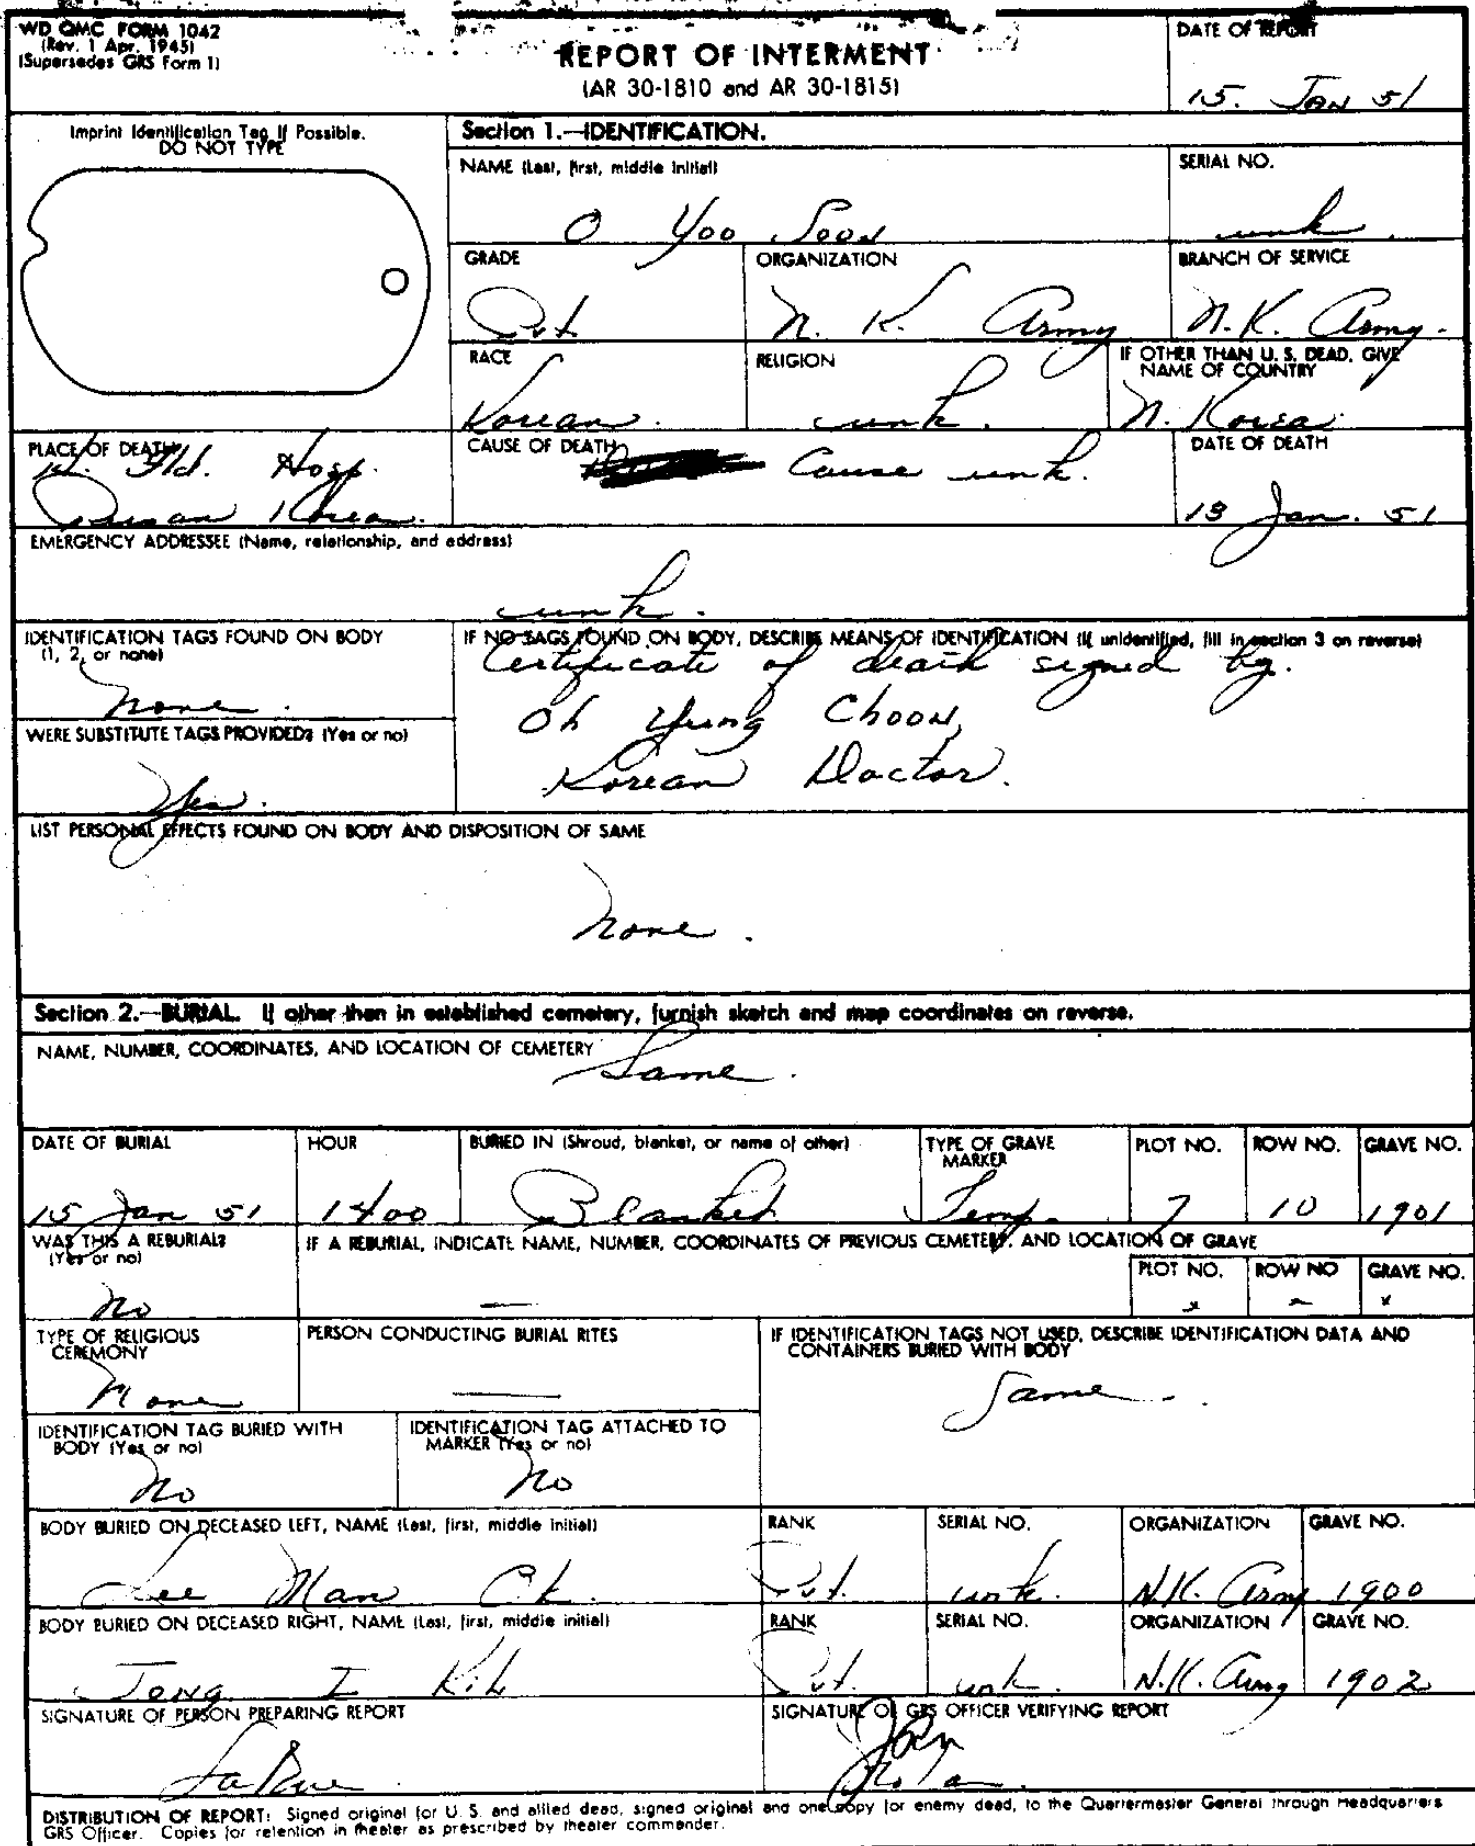 WD QMC FORM 1042
(Rev. 1 Apr. 1945)
(Supersedes GRS Form 1)
REPORT OF INTERMENT
(AR 30-1810 and AR 30-1815)
DATE OF REPORT
15. JAN 51
Imprint Identification Tag If Possible.
DO NOT TYPE
Section 1.—IDENTIFICATION.
NAME (Last, first, middle initial)
O Yoo Soon
SERIAL NO.
unk.
GRADE
Pvt.
ORGANIZATION
N. K. Army
BRANCH OF SERVICE
N.K. Army.
RACE
Korean.
RELIGION
unk.
IF OTHER THAN U. S. DEAD, GIVE
NAME OF COUNTRY
N. Korea.
PLACE OF DEATH
Fld. Hosp.
Pusan Korea.
CAUSE OF DEATH
Cause unk.
DATE OF DEATH
13 Jan. 51
EMERGENCY ADDRESSEE (Name, relationship, and address)
unk.
IDENTIFICATION TAGS FOUND ON BODY
(1, 2, or none)
none.
IF NO TAGS FOUND ON BODY, DESCRIBE MEANS OF IDENTIFICATION (If unidentified, fill in section 3 on reverse)
Certificate of death signed by.
Oh Yung Choon,
Korean Doctor.
WERE SUBSTITUTE TAGS PROVIDED? (Yes or no)
Yes.
LIST PERSONAL EFFECTS FOUND ON BODY AND DISPOSITION OF SAME
None.
Section 2.—BURIAL. If other than in established cemetery, furnish sketch and map coordinates on reverse.
NAME, NUMBER, COORDINATES, AND LOCATION OF CEMETERY
Same.
DATE OF BURIAL
15 Jan 51
HOUR
1400
BURIED IN (Shroud, blanket, or name of other)
Blanket
TYPE OF GRAVE
MARKER
Temp.
PLOT NO.
7
ROW NO.
10
GRAVE NO.
1901
WAS THIS A REBURIAL?
(Yes or no)
No
IF A REBURIAL, INDICATE NAME, NUMBER, COORDINATES OF PREVIOUS CEMETERY, AND LOCATION OF GRAVE
—
PLOT NO.
ROW NO
GRAVE NO.
TYPE OF RELIGIOUS
CEREMONY
None
PERSON CONDUCTING BURIAL RITES
—
IF IDENTIFICATION TAGS NOT USED, DESCRIBE IDENTIFICATION DATA AND
CONTAINERS BURIED WITH BODY
Same.
IDENTIFICATION TAG BURIED WITH
BODY (Yes or no)
No
IDENTIFICATION TAG ATTACHED TO
MARKER (Yes or no)
No
BODY BURIED ON DECEASED LEFT, NAME (Last, first, middle initial)
Lee Man
RANK
Pvt.
SERIAL NO.
unk.
ORGANIZATION
N.K. Army
GRAVE NO.
1900
BODY BURIED ON DECEASED RIGHT, NAME (Last, first, middle initial)
Jong I Kih
RANK
Pvt.
SERIAL NO.
unk.
ORGANIZATION
N.K. Army
GRAVE NO.
1902
SIGNATURE OF PERSON PREPARING REPORT
LaRue
SIGNATURE OF GRS OFFICER VERIFYING REPORT
DISTRIBUTION OF REPORT: Signed original for U. S. and allied dead, signed original and one copy for enemy dead, to the Quartermaster General through Headquarters
GRS Officer. Copies for retention in theater as prescribed by theater commander.